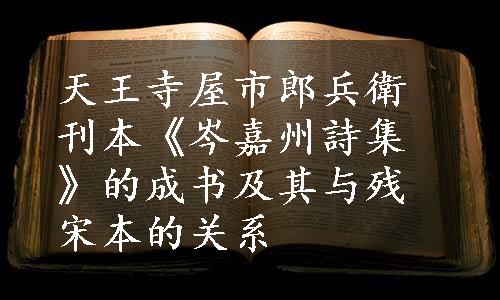 天王寺屋市郎兵衛
刊本《岑嘉州詩集
》的成书及其与残
宋本的关系